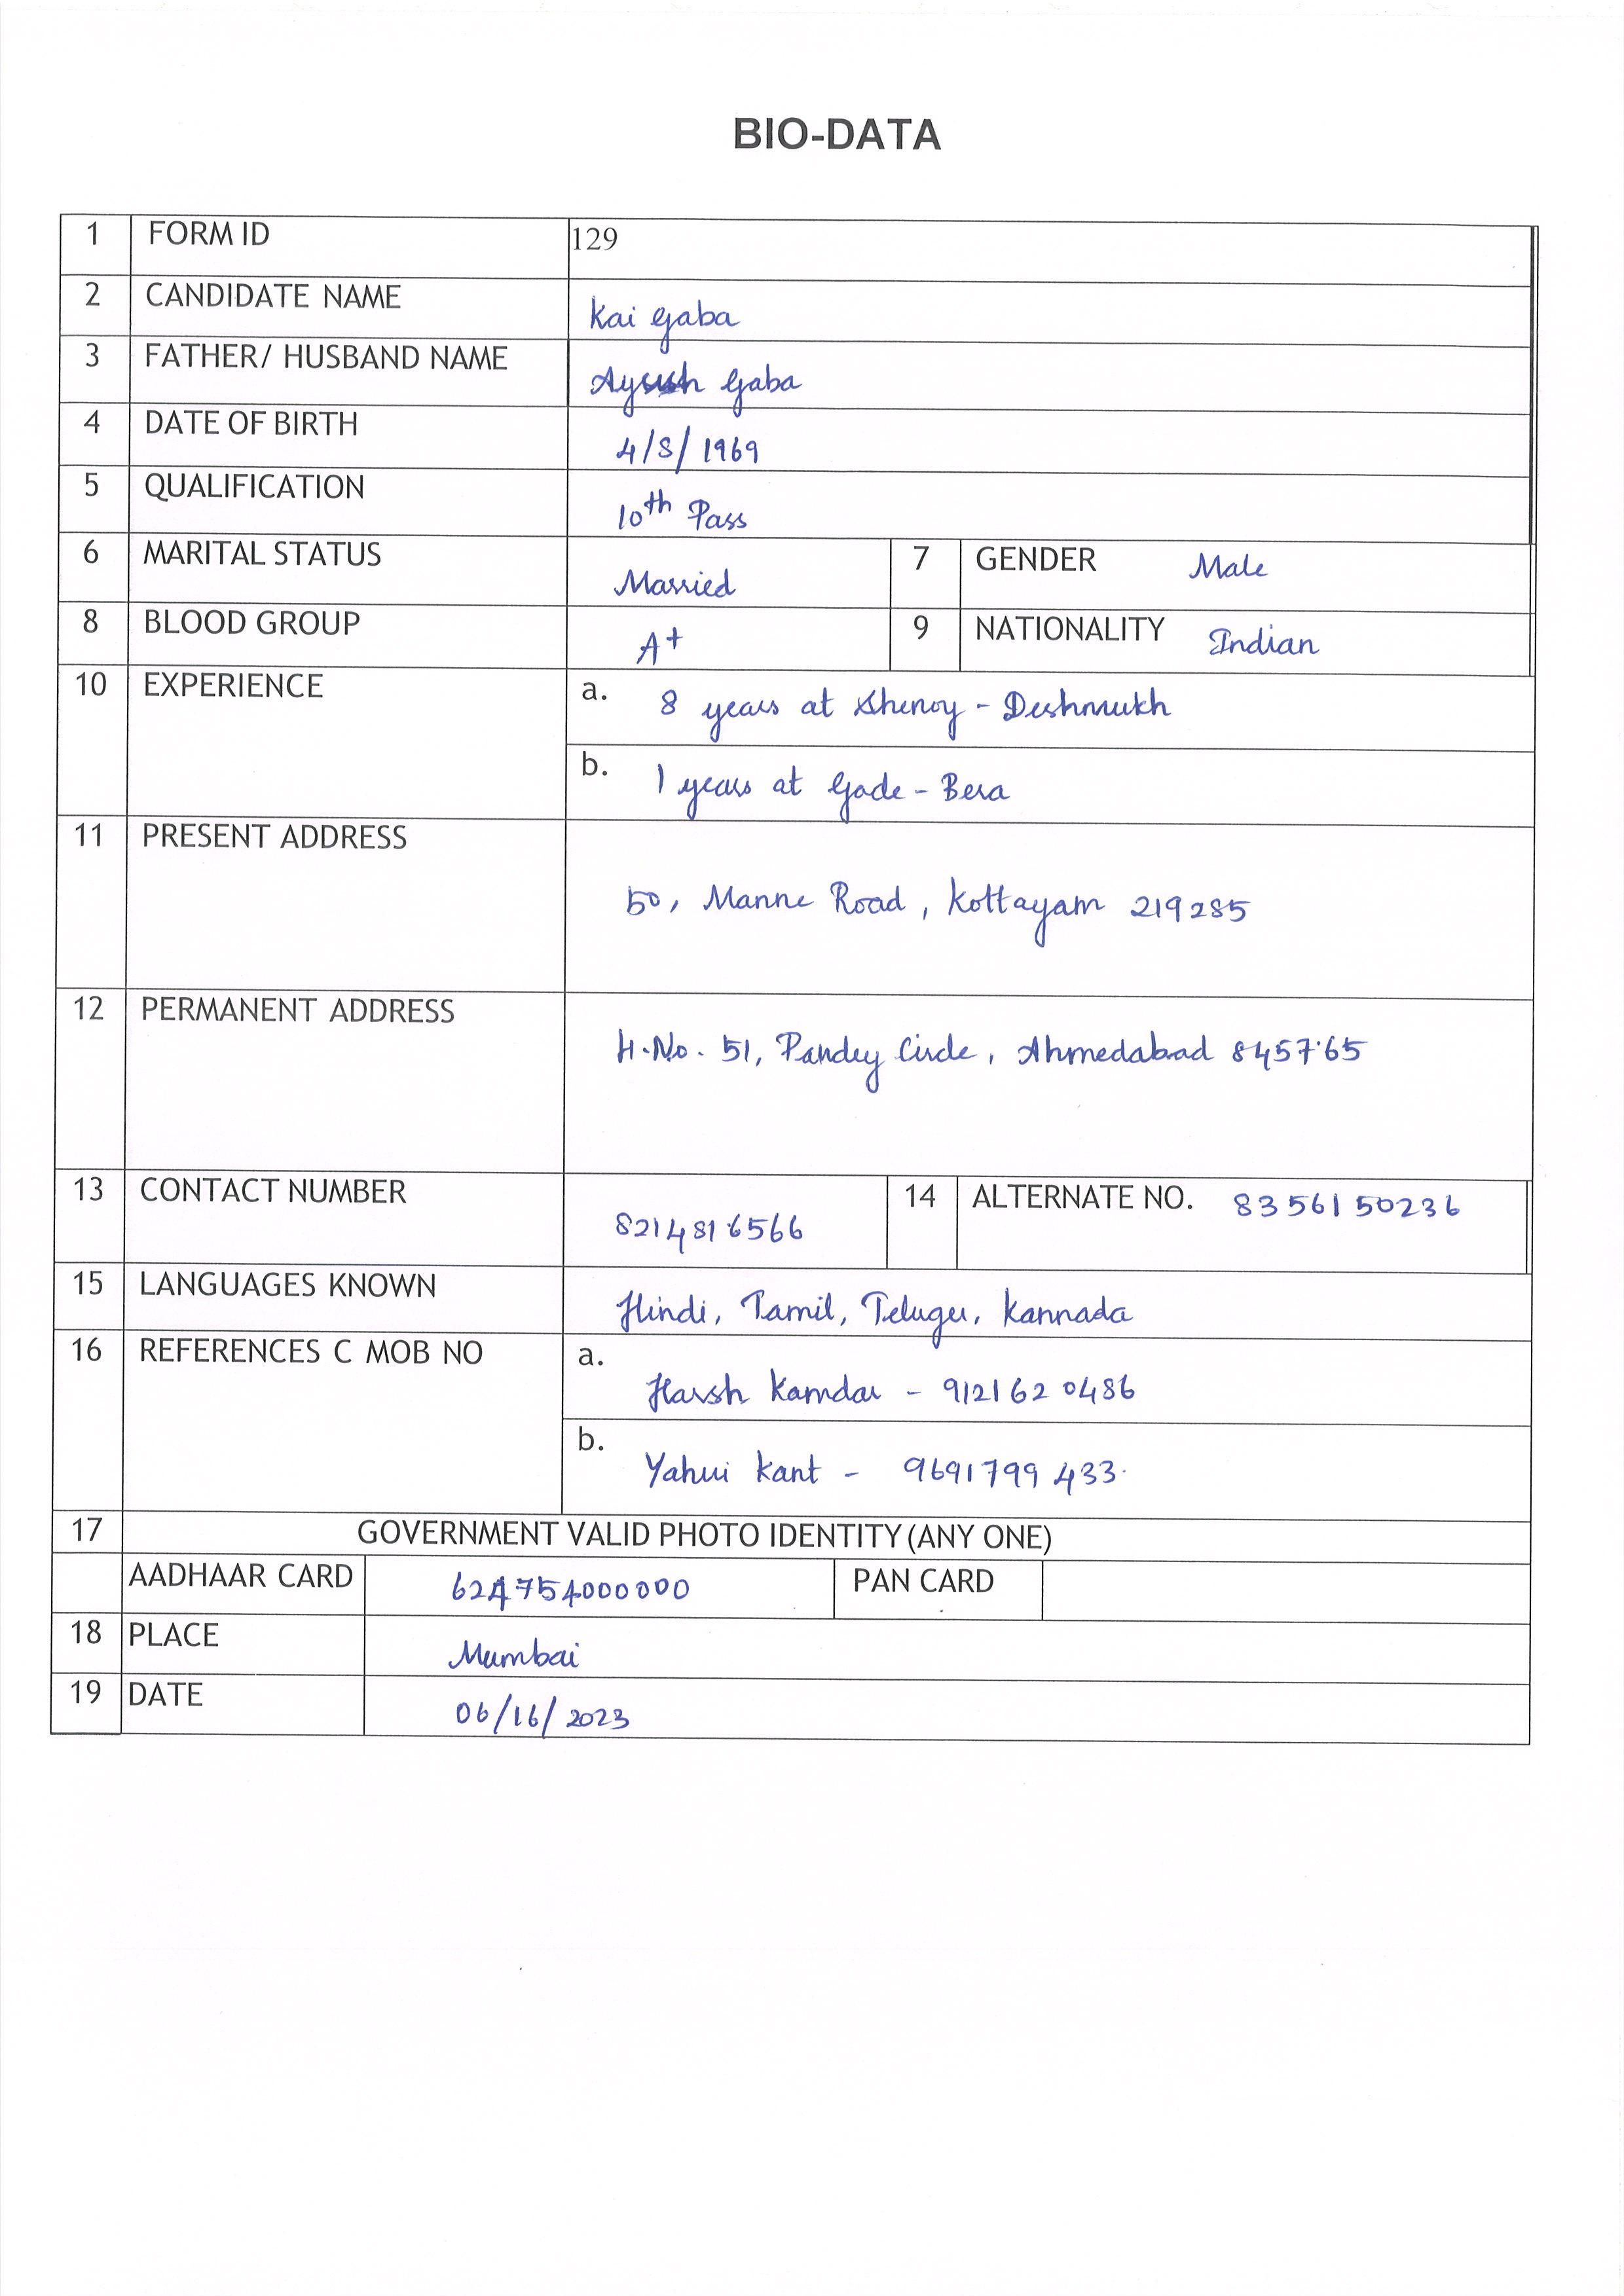 BIO-DATA
1 FORM ID 129
2 CANDIDATE NAME Kai Gaba
3 FATHER/ HUSBAND NAME Ayush Gaba
4 DATE OF BIRTH 4/8/1969
5 QUALIFICATION 10th Pass
6 MARITAL STATUS Married 7 GENDER Male
8 BLOOD GROUP A+ 9 NATIONALITY Indian
10 EXPERIENCE a. 8 years at Shenoy - Deshmukh
b. 1 years at Gade - Bera
11 PRESENT ADDRESS
50, Manne Road, Kottayam 219285
12 PERMANENT ADDRESS
H.No. 51, Pandey Circle, Ahmedabad 845765
13 CONTACT NUMBER 8214816566 14 ALTERNATE NO. 8356150236
15 LANGUAGES KNOWN Hindi, Tamil, Telugu, Kannada
16 REFERENCES C MOB NO a. Harsh Kamdar - 9121620486
b. Yahvi Kant - 9691799433
17 GOVERNMENT VALID PHOTO IDENTITY (ANY ONE)
AADHAAR CARD 624754000000 PAN CARD
18 PLACE Mumbai
19 DATE 06/16/2023